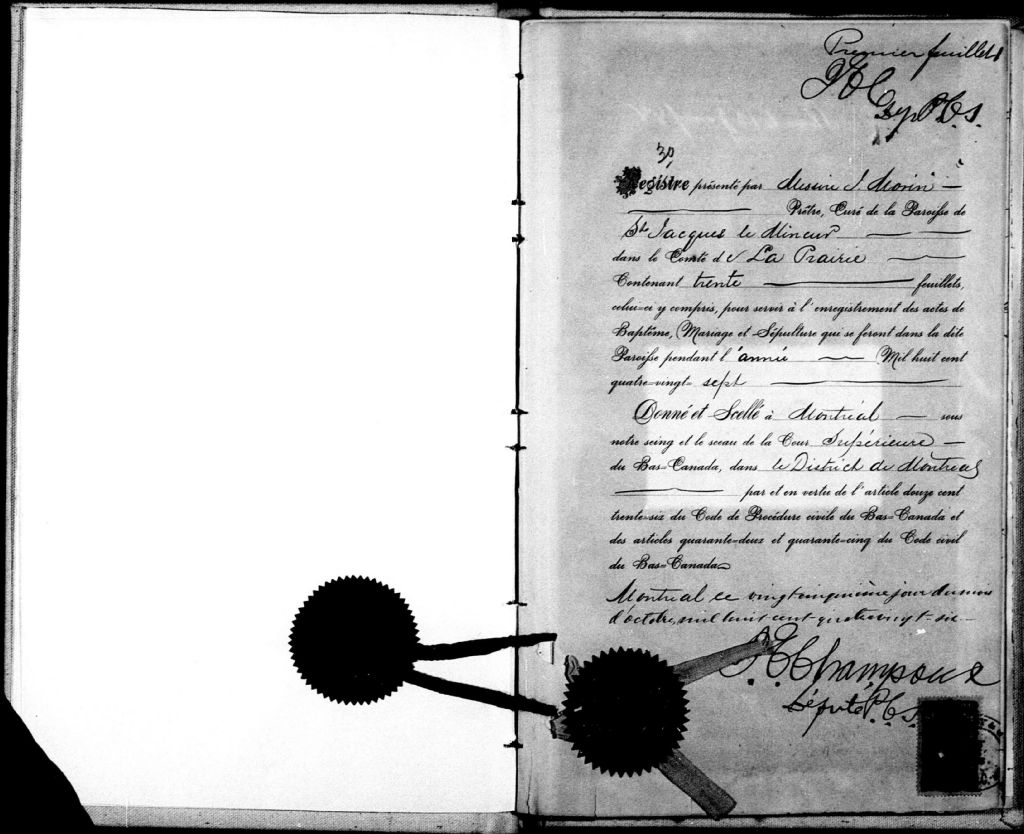 Premier feuillet
Dep P.C.S.
30
Registre présenté par Messire J Morin
Prêtre, Curé de la Paroisse de
St Jacques le Mineur
dans le Comté de La Prairie
Contenant trente feuillets,
celui-ci y compris, pour servir à l'enregistrement des actes de
Baptême, Mariage et Sépulture qui se feront dans la dite
Paroisse pendant l'année Mil huit cent
quatre-vingt-sept
Donné et Scellé à Montréal sous
notre seing et le sceau de la Cour Supérieure
du Bas-Canada, dans le District de Montréal
par et en vertu de l'article douze cent
trente-six du Code de Procédure civile du Bas-Canada et
des articles quarante-deux et quarante-cinq du Code civil
du Bas-Canada
Montréal ce vingtcinquième jour du mois
d'octobre, mil huit cent quatrevingt-six
Champoux
Député P.C.S.